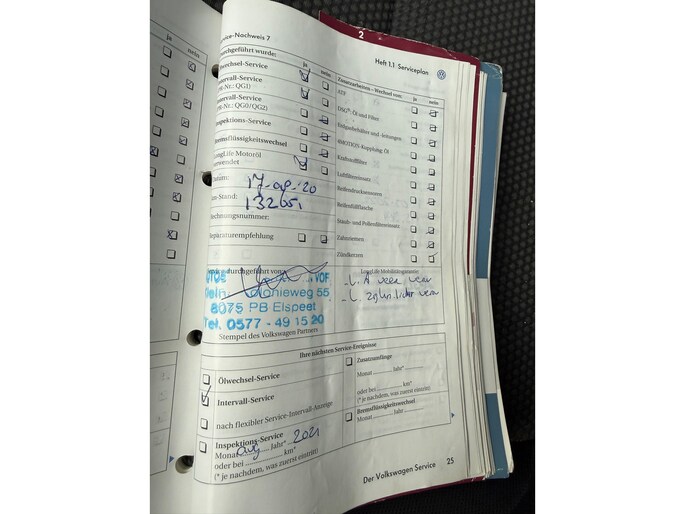 Service-Nachweis 7
2
Heft 1.1 Serviceplan
Durchgeführt wurde: ja nein
Zusatzarbeiten – Wechsel von: ja nein
Ölwechsel-Service
Intervall-Service
(PR-Nr.: QG1)
Intervall-Service
(PR-Nr.: QG0/QG2)
Inspektions-Service
Bremsflüssigkeitswechsel
LongLife Motoröl
verwendet
Datum:
km-Stand:
Rechnungsnummer:
Reparaturempfehlung
ATF
DSG®: Öl und Filter
4MOTION-Kupplung: Öl
Kraftstofffilter
Luftfiltereinsatz
Reifendrucksensoren
Reifenfüllflasche
Staub- und Pollenfiltereinsatz
Zahnriemen
Zündkerzen
Service durchgeführt von:
LongLife Mobilitätsgarantie
VOF
olonieweg 55
8075 PB Elspeet
Tel. 0577 - 49 15 20
Stempel des Volkswagen Partners
Ihre nächsten Service-Ereignisse
Ölwechsel-Service
Intervall-Service
nach flexibler Service-Intervall-Anzeige
Inspektions-Service
Monat aug Jahr* 2021
oder bei km*
(* je nachdem, was zuerst eintritt)
Zusatzumfänge
Monat Jahr*
oder bei km*
(* je nachdem, was zuerst eintritt)
Bremsflüssigkeitswechsel
Monat Jahr
Der Volkswagen Service 25